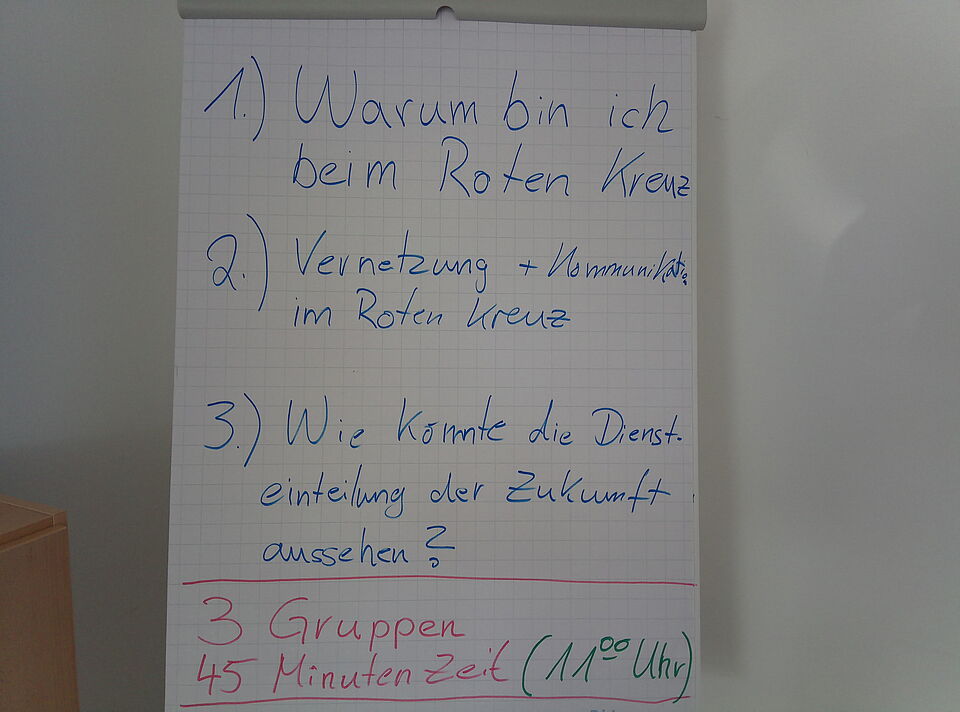 1.) Warum bin ich
beim Roten Kreuz
2.) Vernetzung + Kommunikati
im Roten Kreuz
3.) Wie könnte die Dienst-
einteilung der Zukunft
aussehen?
3 Gruppen
45 Minuten Zeit (11⁰⁰ Uhr)